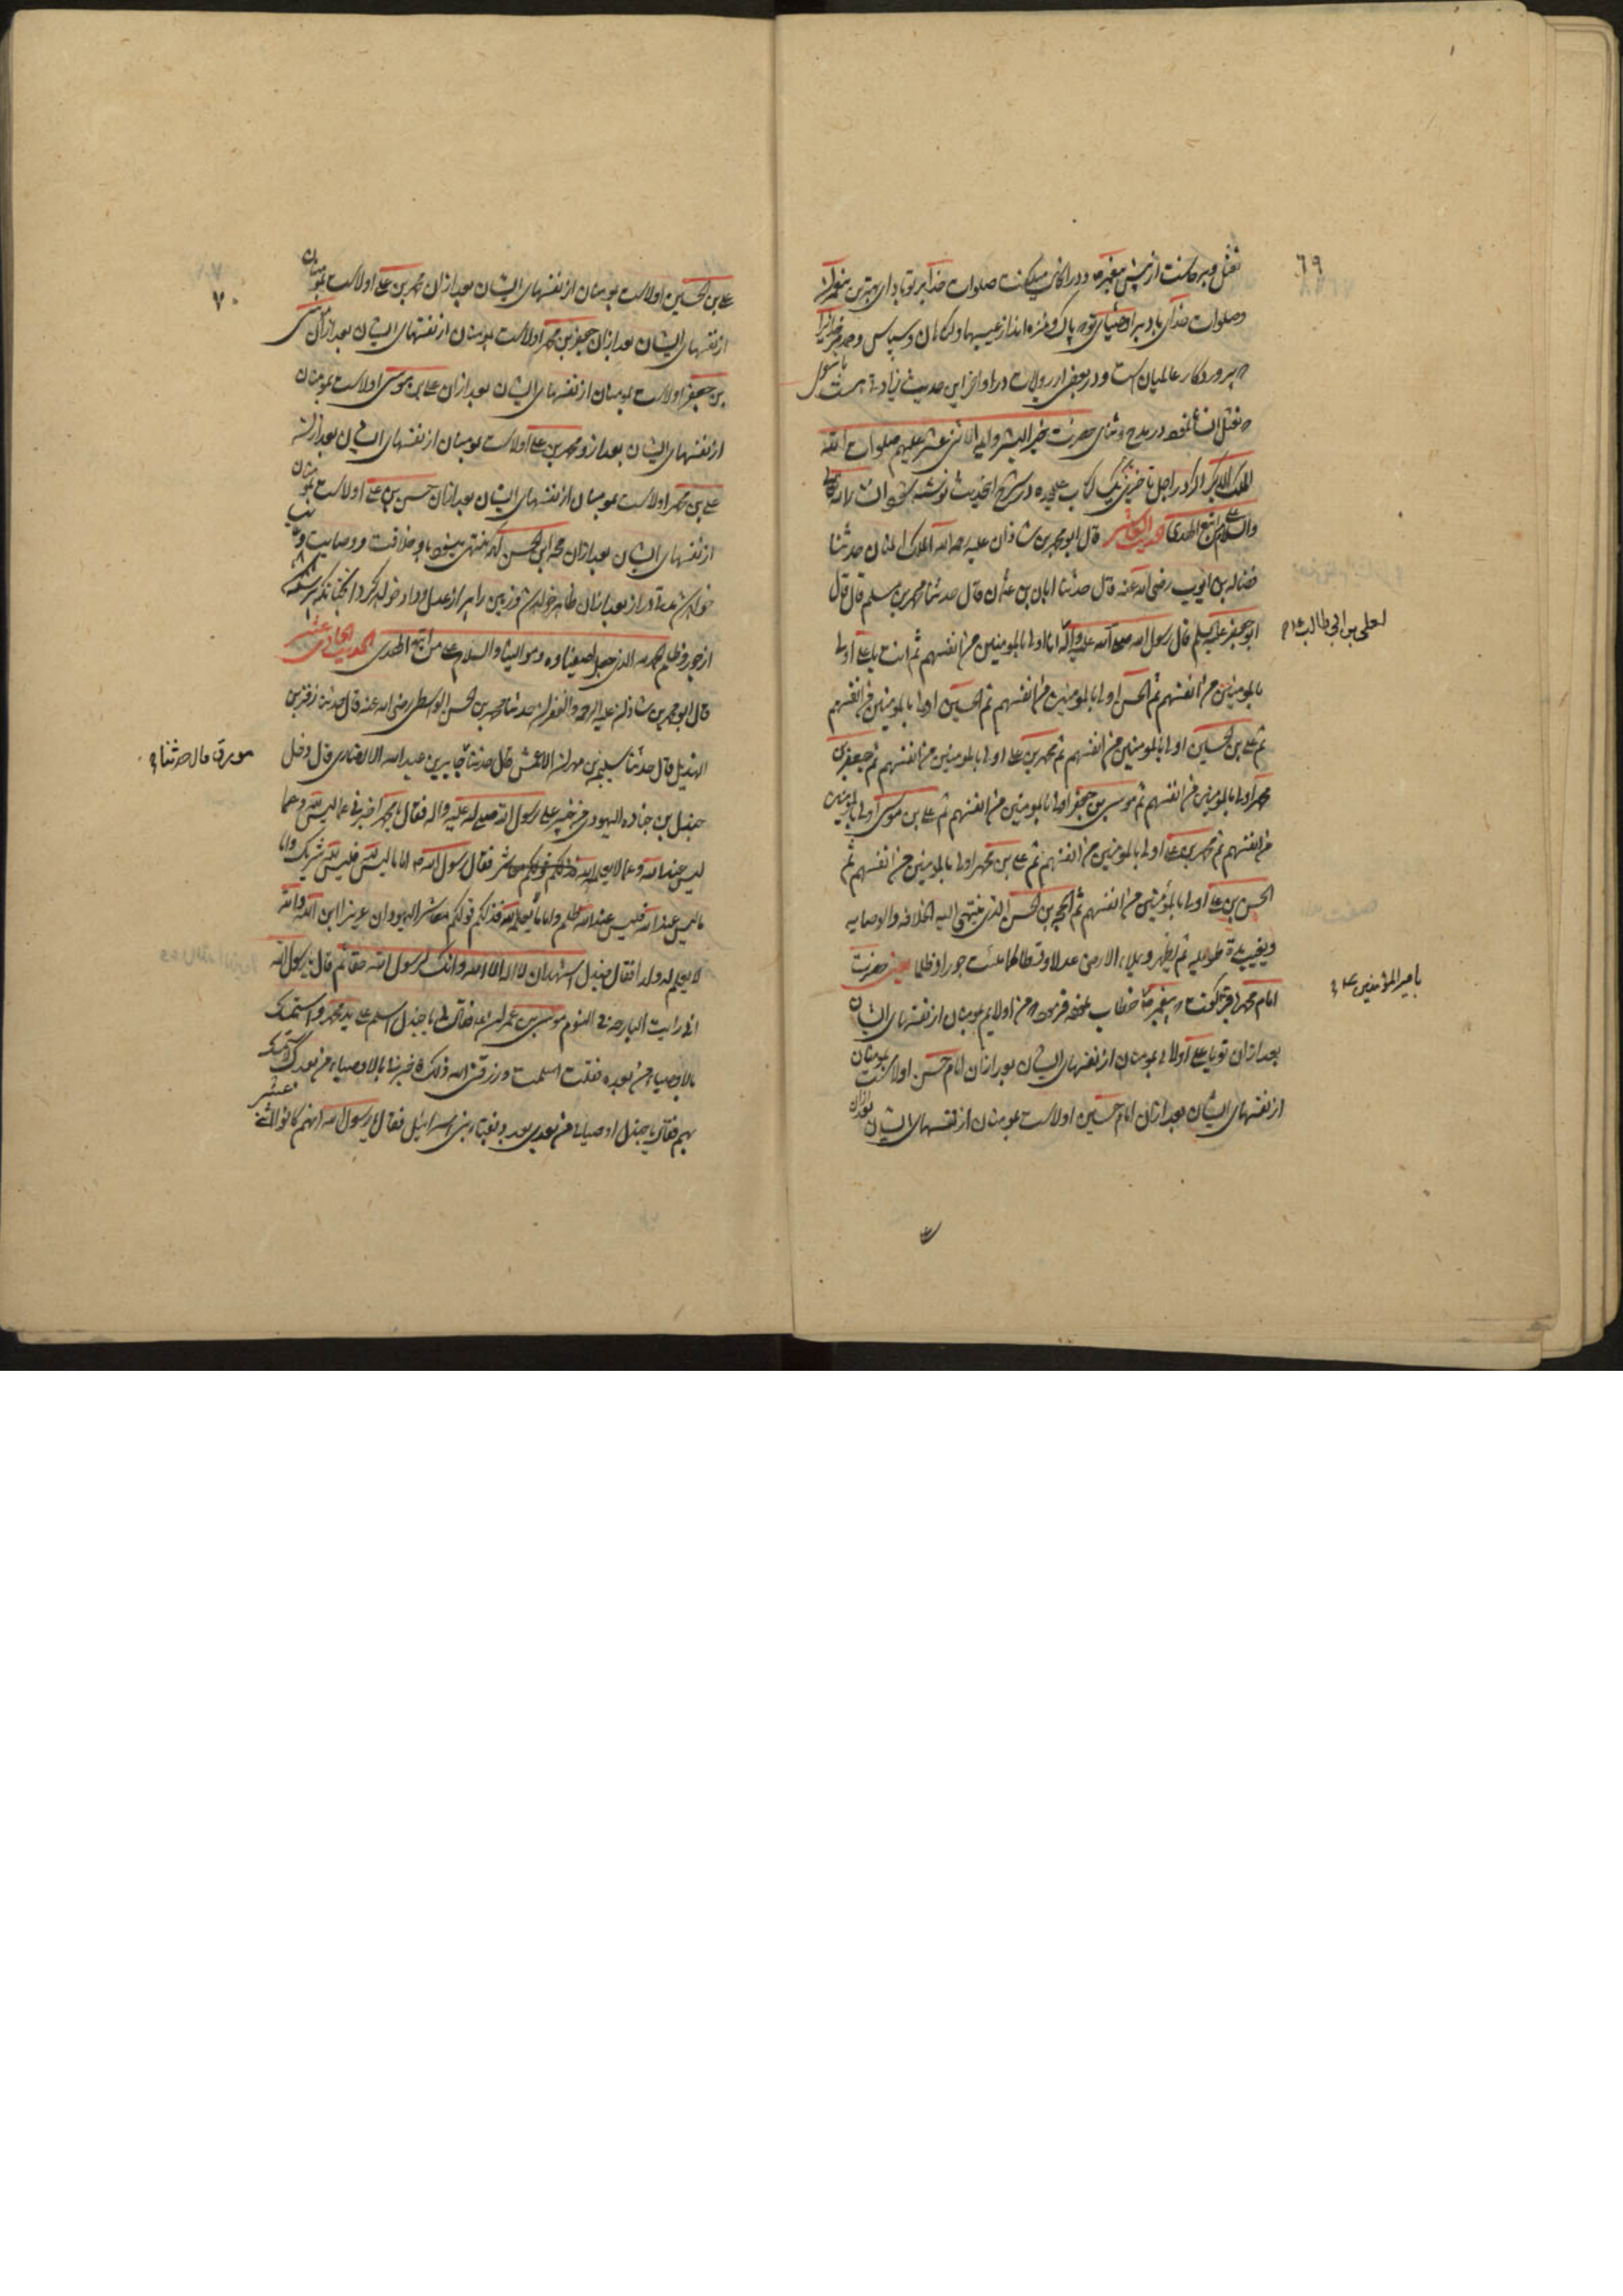 ٦٩
وصلوات خدای باد بر اوصیای تو که پاک و منزه اند از عیبها و گناهان و سپاس و حمد مر خدایرا
که پروردگار عالمیان است و در بعضی از روایات در اواخر این حدیث زیادتی هست
در مدح و ثنای حضرت خیر البشر وایمه الاثنی عشر علیهم صلوات الله
الملک الاکبر
والسلام علی من اتبع الهدی الحدیث العاشر قال ابو محمد بن شاذان علیه رحمة الله الملک المنان حدثنا
فضاله بن ایوب رضی الله عنه قال حدثنا ابان بن عثمان قال حدثنا محمد بن مسلم قال قال
ابو جعفر علیه السلم قال رسول الله صلی الله علیه وآله انا اولی بالمومنین من انفسهم ثم انت یا علی اولی
لعلی بن ابی طالب ع
بالمومنین من انفسهم ثم الحسن اولی بالمومنین من انفسهم ثم الحسین اولی بالمومنین من انفسهم
ثم علی بن الحسین اولی بالمومنین من انفسهم ثم محمد بن علی اولی بالمومنین من انفسهم ثم جعفر بن
محمد اولی بالمومنین من انفسهم ثم موسی بن جعفر اولی بالمومنین من انفسهم ثم علی بن موسی اولی بالمومنین
من انفسهم ثم محمد بن علی اولی بالمومنین من انفسهم ثم علی بن محمد اولی بالمومنین من انفسهم ثم
الحسن بن علی اولی بالمؤمنین من انفسهم ثم الحجه بن الحسن الذی ینتهی الیه الخلافه والوصایه
ویغیب مدة طویله ثم یظهر ویملاء الارض عدلا وقسطا کما ملئت جورا وظلما یعنی حضرت
امام محمد باقر گفت که پیغمبر ص خطاب نموده فرمود که من اولایم بمومنان از نفسهای ایشان
بامیر المؤمنین ع
بعد ازان تو یا علی اولائی بمومنان از نفسهای ایشان بعد ازان امام حسن اولاست بمومنان
از نفسهای ایشان بعد ازان امام حسین اولاست بمومنان از نفسهای ایشان بعد ازان
٧٠
علی بن الحسین اولاست بمومنان از نفسهای ایشان بعد ازان محمد بن علی اولاست بمومنان
از نفسهای ایشان بعد ازان جعفر بن محمد اولاست بمومنان از نفسهای ایشان بعد ازان موسی
بن جعفر اولاست بمومنان از نفسهای ایشان بعد ازان علی بن موسی اولاست بمومنان
از نفسهای ایشان بعد ازو محمد بن علی اولاست بمومنان از نفسهای ایشان بعد ازان
علی بن محمد اولاست بمومنان از نفسهای ایشان بعد ازان حسن بن علی اولاست بمومنان
از نفسهای ایشان بعد ازان حجه بن الحسن که منتهی میشود باو خلافت و وصایت و غایب
خواهد شد مدة دراز بعد ازان ظاهر خواهد شد و زمین را پر از عدل و داد خواهد کرد انچنانکه پر شده
از جور و ظلم والسلام علی من اتبع الهدی الحدیث الحادی عشر
قال ابو محمد بن شاذان علیه الرحمه والغفران حدثنا محمد بن الحسن الواسطی رضی الله عنه قال حدثنا زفر بن
الهذیل قال حدثنا سلیمن بن مهران الاعمش قال حدثنا جابر بن عبد الله الانصاری قال دخل
مورق قال حدثنا
جندل بن جناده الیهودی من خیبر علی رسول الله صلی الله علیه واله فقال یا محمد اخبرنی عما لیس لله وعما
لیس عند الله وعما لا یعلمه الله فقال رسول الله ص اما ما لیس لله فلیس لله شریک واما
ما لیس عند الله فلیس عند الله ظلم واما ما لا یعلمه الله فذلکم قولکم معاشر الیهود ان عزیرا ابن الله والله
لا یعلم له ولدا فقال جندل اشهد ان لا اله الا الله وانک لرسول الله حقا ثم قال یا رسول الله
انی رایت البارحه فی النوم موسی بن عمران ع فقال لی یا جندل اسلم علی ید محمد واستمسک
بالاوصیاء من بعده فقلت اسلمت ورزقنی الله ذلک فاخبرنی بالاوصیاء من بعدک لاتمسک
بهم فقال یا جندل اوصیائی من بعدی بعدد نقباء بنی اسرائیل فقال یا رسول الله انهم کانوا اثنی عشر